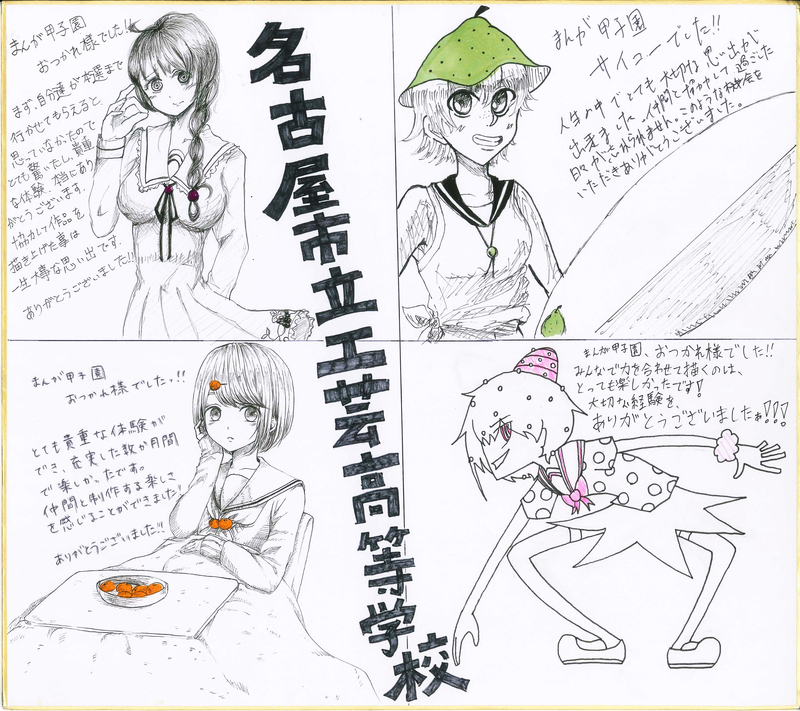 まんが甲子園
おつかれ様でした!!
まず、自分達が本選まで
行かせてもらえると
思っていなかったので
とても驚いたし、貴重
な体験、本当にあり
がとうございます。
協力して作品を
描き上げた事は
一生大事な思い出です
ありがとうございました!!
名古屋市立工芸高等学校
まんが甲子園
サイコーでした!!
人生の中でとても大切な思い出が
出来ました。仲間と
過ごした
日々が忘れられません。このような機会を
いただきありがとうございました。
まんが甲子園
おつかれ様でしたッ!!
とても貴重な体験が
でき、充実した数か月間
で楽しかったです。
仲間と制作する楽しさ
を感じることができました!
ありがとうございました!!
まんが甲子園、おつかれ様でした!!
みんなで力を合わせて描くのは、
とっても楽しかったです!
大切な経験を、
ありがとうございましたぁ!!!